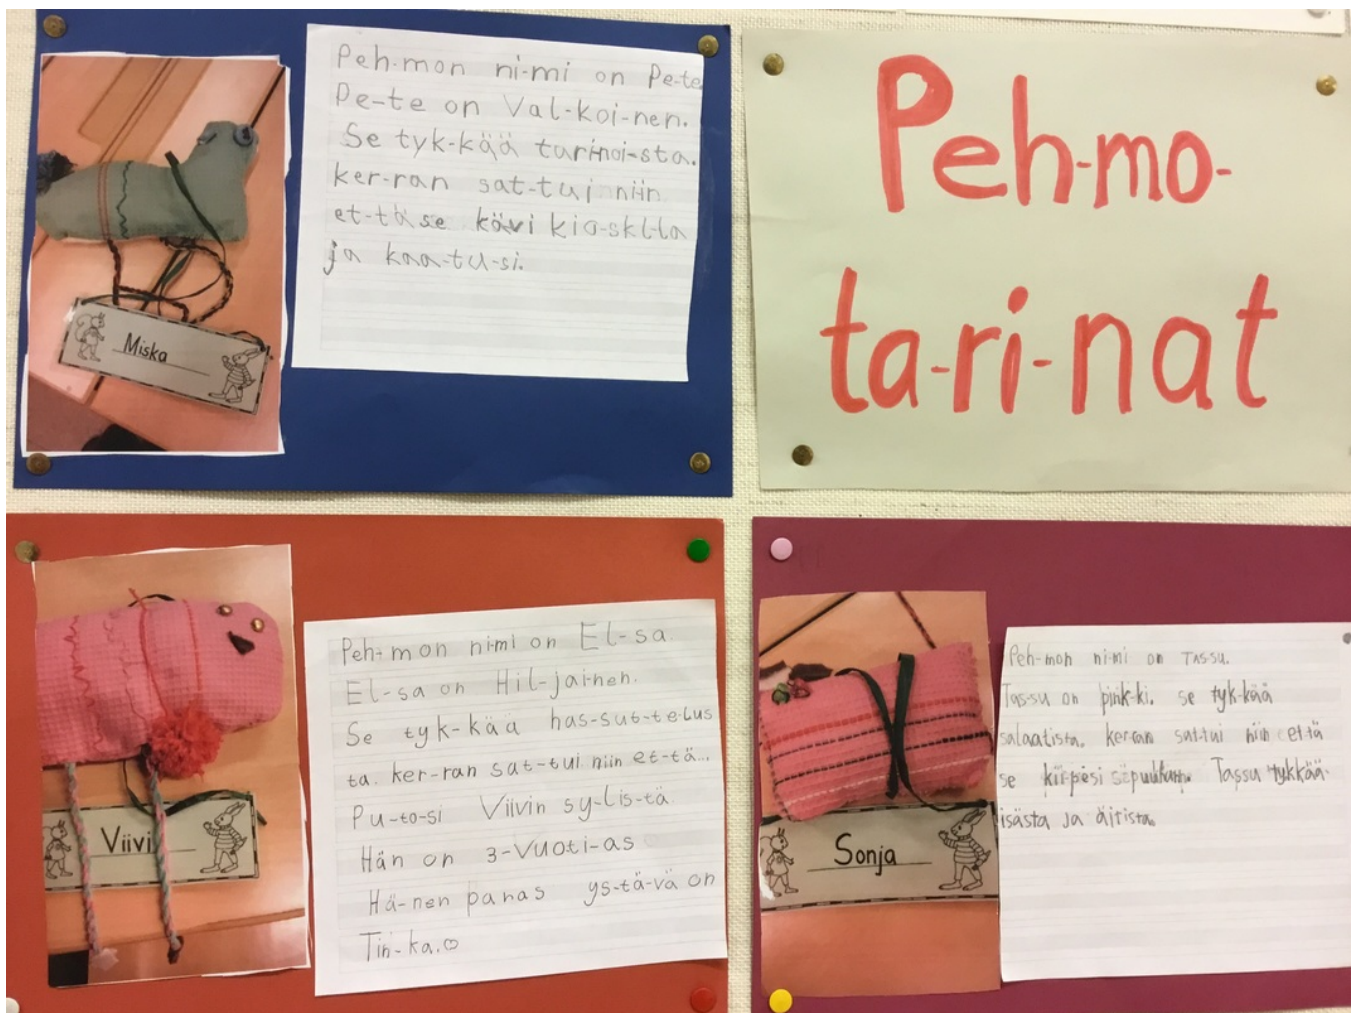 Peh-mon ni-mi on Pe-te.
Pe-te on Val-koi-nen.
Se tyk-kää tarinoi-sta.
ker-ran sat-tui niin
et-tä se kävi
ja kaa-tu-si.
Miska
Peh-mo-
ta-ri-nat
Peh-mon ni-mi on El-sa.
El-sa on Hil-jai-nen.
Se tyk-kää has-sut-te-lus
ta. ker-ran sat-tui niin et-tä...
Pu-to-si Viivin sy-lis-tä.
Hän on 3-Vuoti-as
Hä-nen paras ys-tä-vä on
Tin-ka.♡
Viivi
Peh-mon ni-mi on Tassu.
Tas-su on pink-ki. se tyk-kää
salaatista. ker-ran sat-tui niin et-tä
se kii-pesi Tassu tykkää-
isästa ja äitista.
Sonja